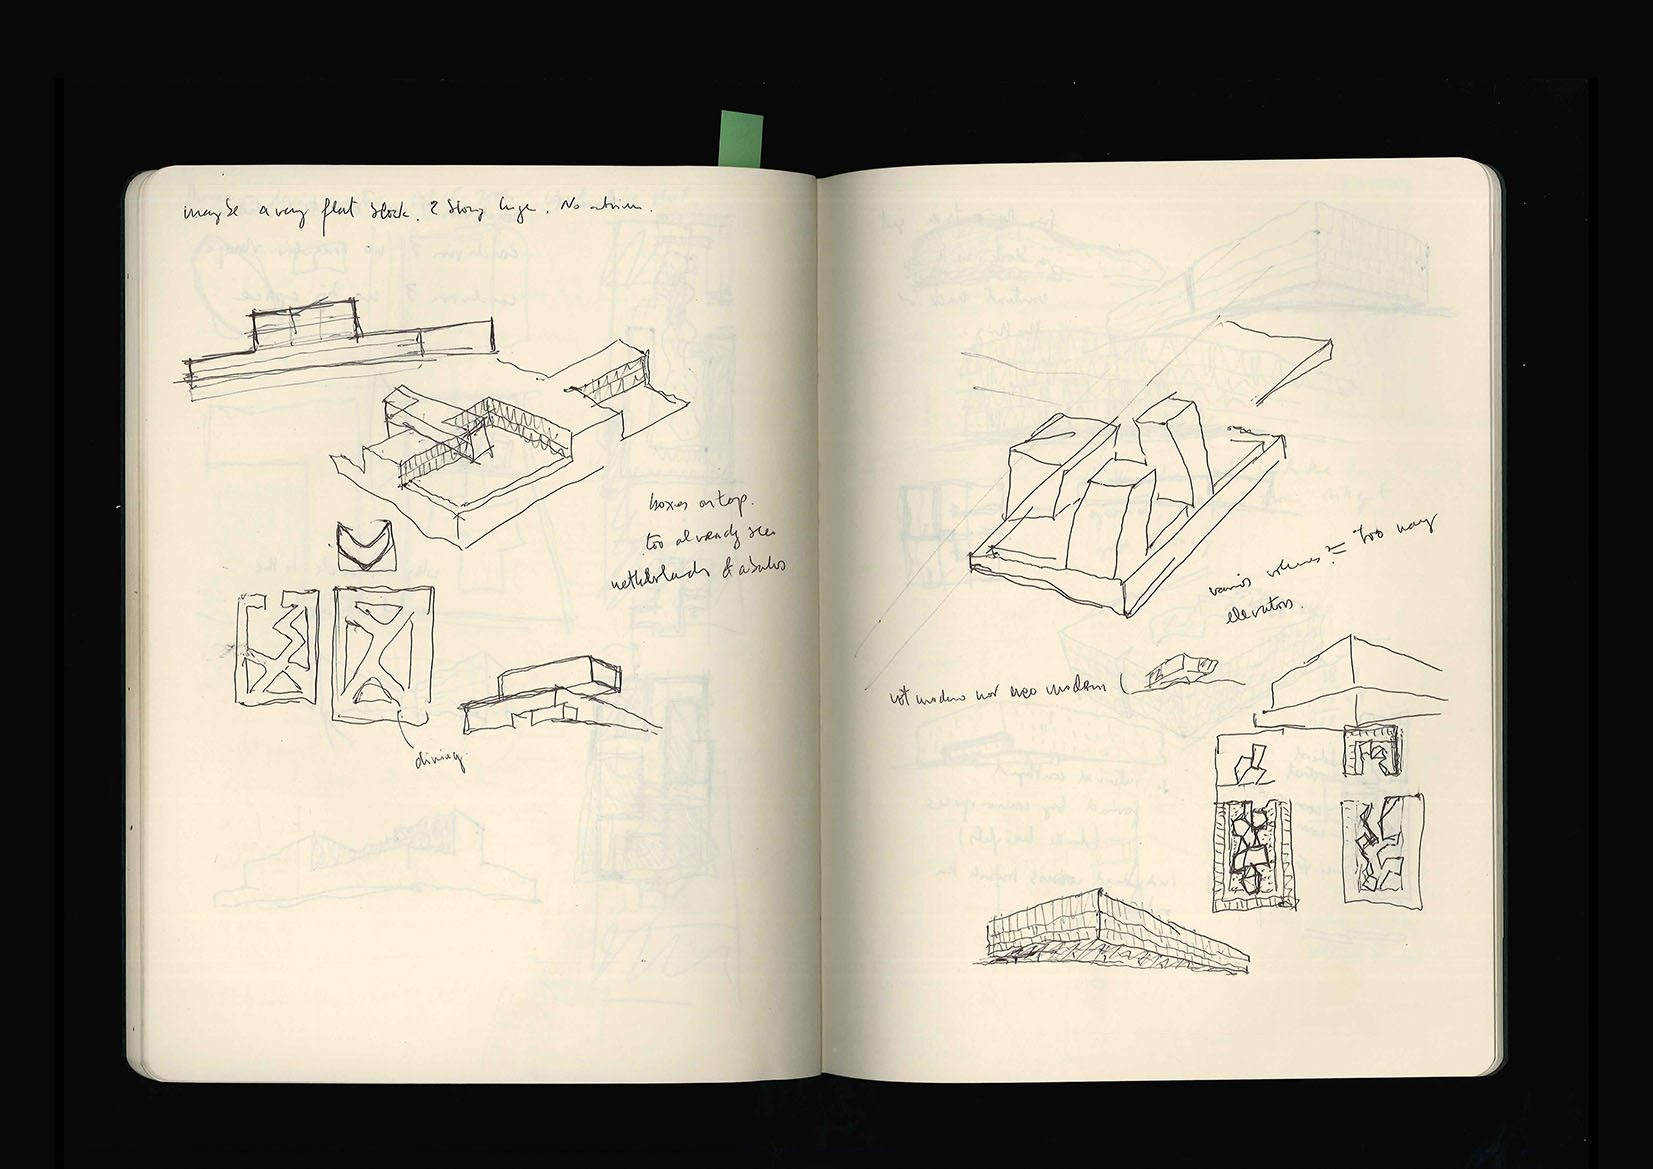 maybe a very flat block. 2 story huge. No atrium.
boxes on top.
too already seen
netherlands &
dining
various volumes? = too many
elevators.
not modern nor neo modern